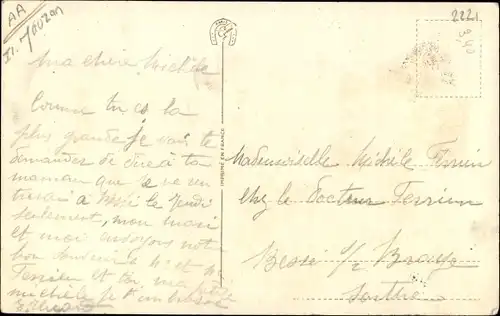 AA
M. Mauzan
2221
Ma chère Michèle
Comme tu es la
plus grande je vais te
demander de dire à ta
maman que je ne
à le jeudi
seulement, mon mari
et moi envoyons not
bon souvenir à Mr et Me
Ferrien et toi ma petite
michèle je t'embrasse
IMPRIMÉ EN FRANCE
Mademoiselle Michèle Ferrien
chez le Docteur Ferrien
Bessé s/ Braye
Sarthe